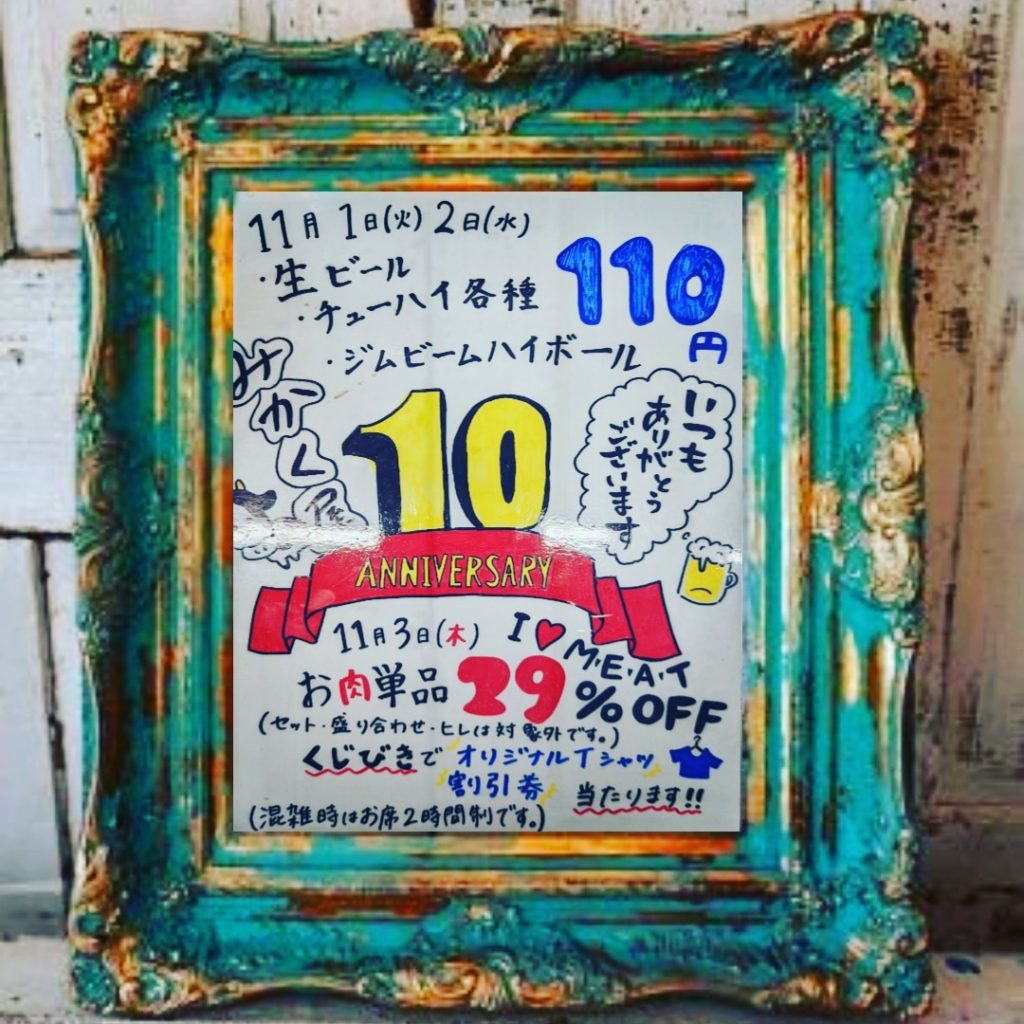 11月1日(火)2日(水)
・生ビール
・チューハイ各種
・ジムビームハイボール
110
円
みかく屋
いつも
ありがとう
ございます
10
ANNIVERSARY
11月3日(木)
I ♥
M・E・A・T
お肉単品 29%OFF
(セット・盛り合わせ・ヒレは対象外です。)
くじびきで オリジナルTシャツ
割引券
当たります!!
(混雑時はお席2時間制です。)